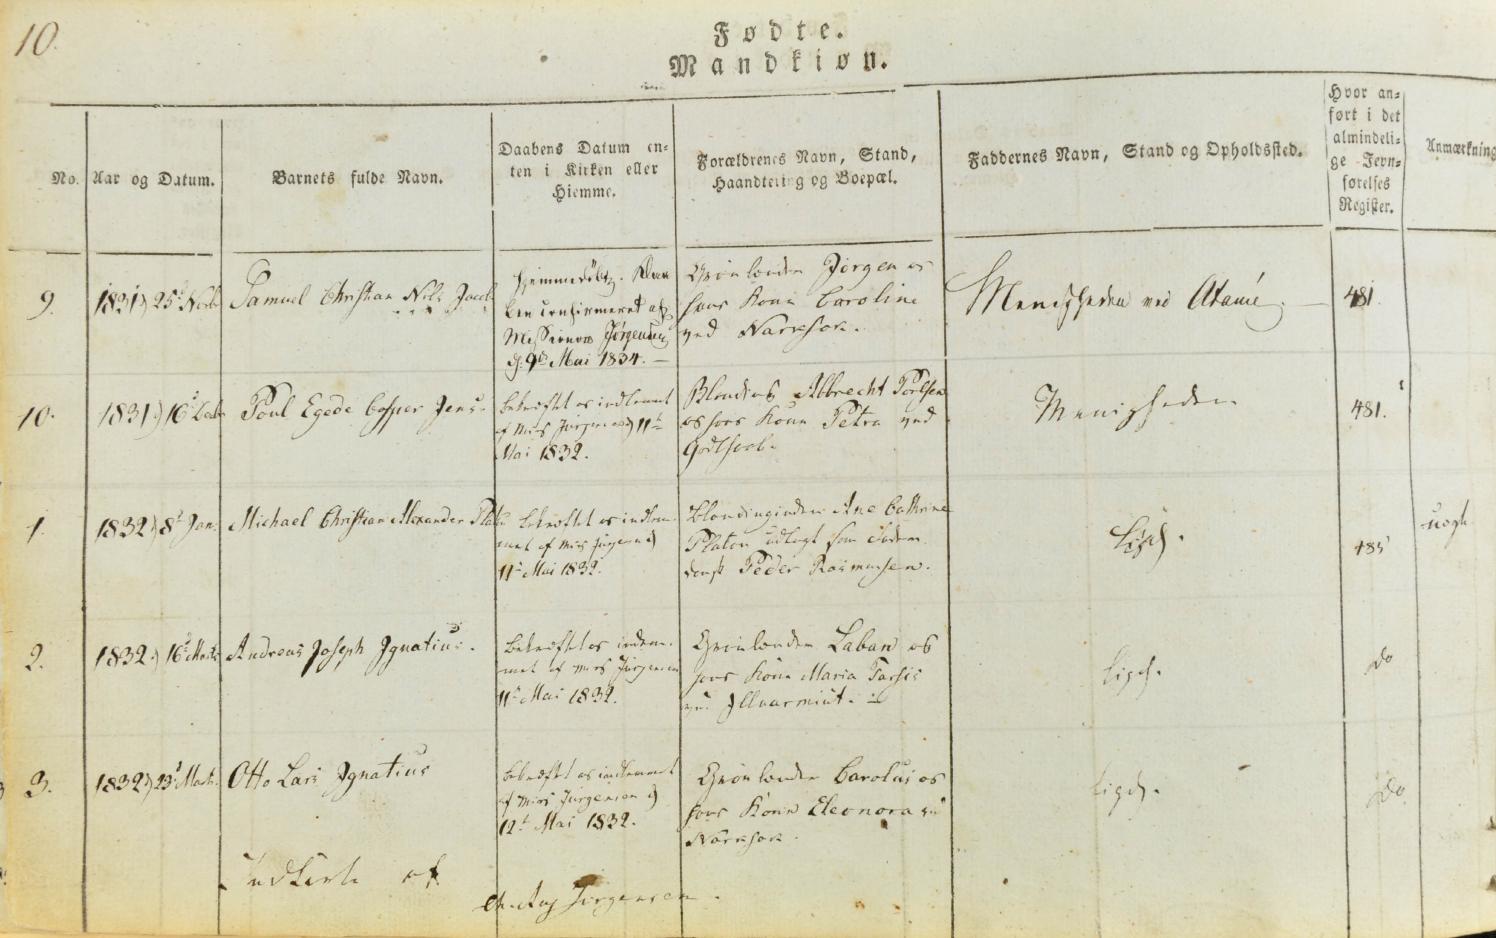 10.
Fødte.
Mandkiøn.
No.
Aar og Datum.
Barnets fulde Navn.
Daabens Datum en-
ten i Kirken eller
Hiemme.
Forældrenes Navn, Stand,
Haandtering og Boepæl.
Faddernes Navn, Stand og Opholdssted.
Hvor an-
ført i det
almindeli-
ge Jevn-
førelses
Register.
Anmærkning
9.
1831 25
Samuel Christian Nils Jacob
Hjemmedøbt.
confirmeret af
Missionær Jørgensen
d. 9 Mai 1834.
Grønlænder Jørgen og
hans Kone Caroline
ved Narksok.
Menigheden ved Atamé.
481.
10.
1831 16
Poul Egede Casper Jens
bekræftet og indlemmet
af Miss Jørgensen 11
Mai 1832.
Blending Albrecht
og hans Kone Petra ved
Godthaab.
Menigheden
481.
1.
1832 8 Jan.
Michael Christian Alexander Plato
bekræftet og indlem-
met af Miss Jørgensen
11 Mai 1832.
Blendinginden Ane Cathrine
Platou udlagt som Fader
dansk Peder Rasmussen.
Ligel.
485
uægte
2.
1832. 16 Marts
Andreas Joseph Ignatius.
bekræftet og indlem-
met af Miss Jørgensen
11 Mai 1832.
Grønlænder Laban og
hans Kone Maria Tarsis
Ligel.
do
3.
1832 23 Marts.
Otto Lars Ignatius
bekræftet og indlemmet
af Miss Jørgensen
12 Mai 1832.
Grønlænder Carolus og
hans Kone Eleonora
Narksok
Ligel.
do
af
Jørgensen.